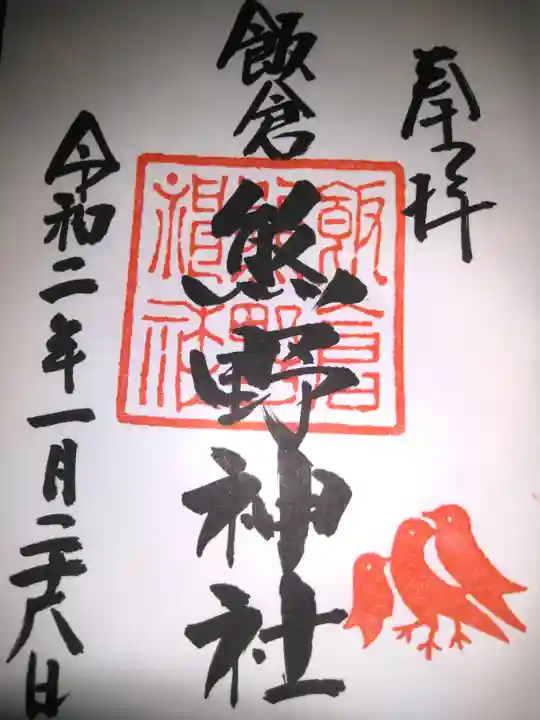 奉拝
飯倉
熊野神社
飯倉熊野神社
令和二年一月二十八日